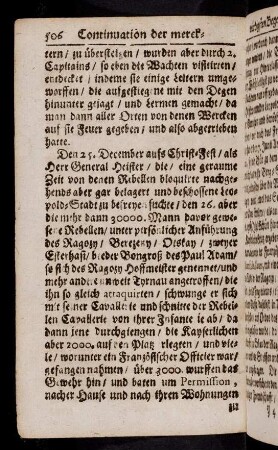 506 Continuation der merck-
tern / zu übersteigen / wurden aber durch 2.
Capitains / so eben die Wachten visitirten /
entdecket / indeme sie einige Leitern umgeworffen / die auffgestiegene mit den Degen
hinunter gejagt / und Lermen gemacht / da
man dann aller Orten von denen Wercken
auf sie Feuer gegeben / und also abgetrieben
hatte.
Den 25. December aufs Christ-Fest / als
Herr General Heister / die / eine geraume
Zeit von denen Rebellen bloquirte nachgehends aber gar belagert und beschossene Leopolds-Stadt zu befreyen suchte / den 26. aber
die mehr dann 30000. Mann davor gewesene Rebellen / unter persönlicher Anführung
des Ragozy / Berezeny / Otskay / zweyer
Esterhasi / beeder Bongroß des Paul Adam /
so sich des Ragozy Hoffmeister genennet / und
mehr andere unweit Tyrnau angetroffen / die
ihn so gleich attaquirten / schwunge er sich
mit seiner Cavallerie und schnitte der Rebellen Cavallerie von ihrer Infanterie ab / da
dann jene durchgiengen / die Kayserlichen
aber 2000. auf den Platz erlegten / und viele / worunter ein Französischer Officier war /
gefangen nahmen / über 3000. wurffen das
Gewehr hin / und baten um Permission,
nacher Hause und nach ihren Wohnungen
zu